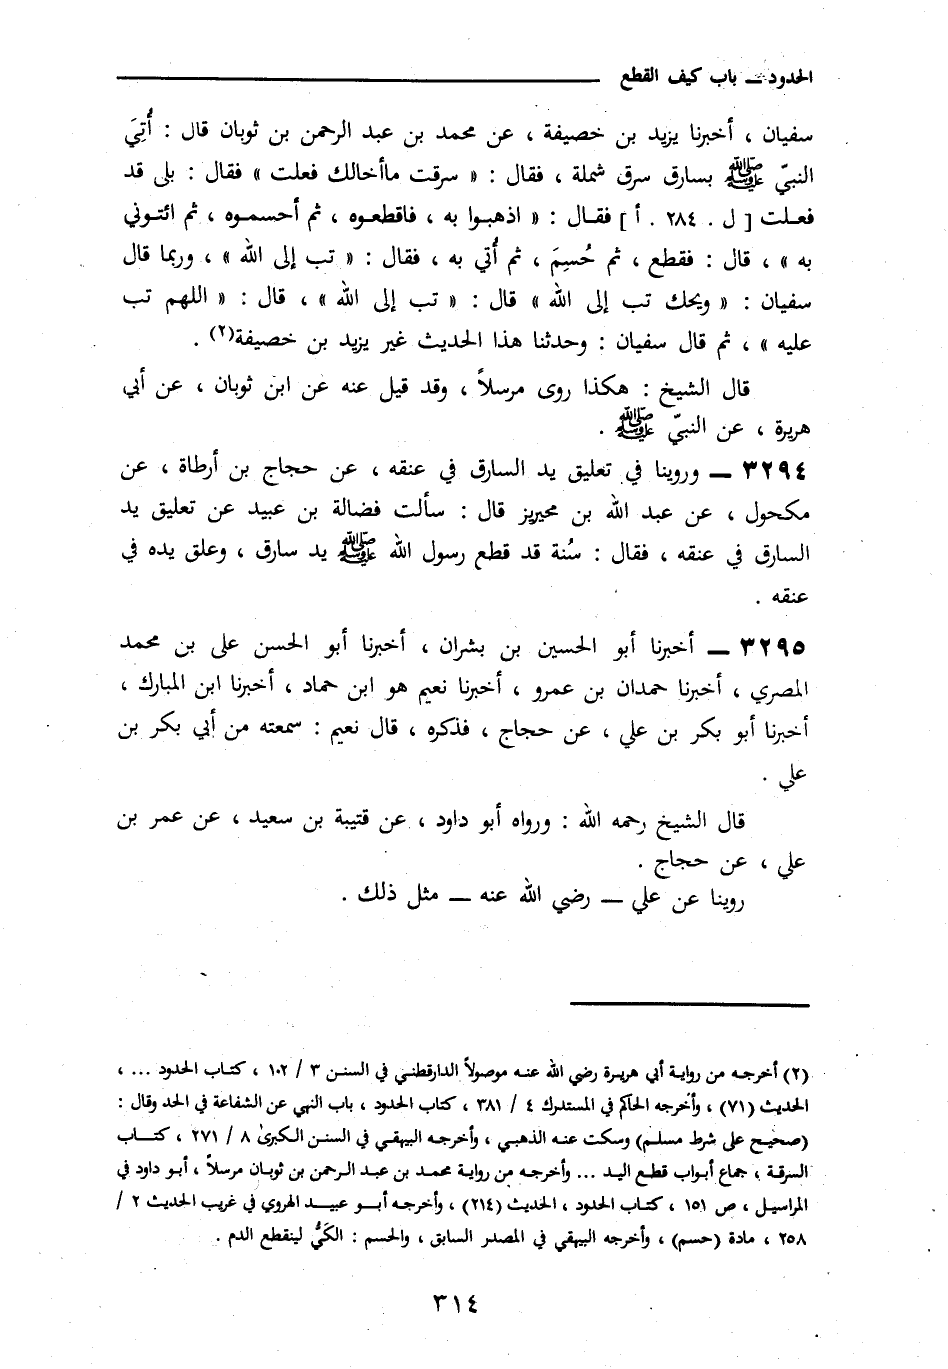 الحدود ــ باب كيف القطع
سفيان ، أخبرنا يزيد بن خصيفة ، عن محمد بن عبد الرحمن بن ثوبان قال : أُتِيَ
النبيّ ﷺ بسارق سرق شملة ، فقال : « سرقت ماأخالك فعلت » فقال : بلى قد
فعلت [ ل . ٢٨٤ . أ ] فقال : « اذهبوا به ، فاقطعوه ، ثم أحسموه ، ثم ائتوني
به » ، قال : فقطع ، ثم حُسِمَ ، ثم أُتي به ، فقال : « تب إلى الله » ، وربما قال
سفيان : « ويحك تب إلى الله » قال : « تب إلى الله » ، قال : « اللهم تب
عليه » ، ثم قال سفيان : وحدثنا هذا الحديث غير يزيد بن خصيفة(٢) .
قال الشيخ : هكذا روى مرسلاً ، وقد قيل عنه عن ابن ثوبان ، عن أبي
هريرة ، عن النبيّ ﷺ .
٣٢٩٤ ــ وروينا في تعليق يد السارق في عنقه ، عن حجاج بن أرطاة ، عن
مكحول ، عن عبد الله بن محيريز قال : سألت فضالة بن عبيد عن تعليق يد
السارق في عنقه ، فقال : سُنة قد قطع رسول الله ﷺ يد سارق ، وعلق يده في
عنقه .
٣٢٩٥ ــ أخبرنا أبو الحسين بن بشران ، أخبرنا أبو الحسن على بن محمد
المصري ، أخبرنا حمدان بن عمرو ، أخبرنا نعيم هو ابن حماد ، أخبرنا ابن المبارك ،
أخبرنا أبو بكر بن علي ، عن حجاج ، فذكره ، قال نعيم : سمعته من أبي بكر بن
علي .
قال الشيخ رحمه الله : ورواه أبو داود ، عن قتيبة بن سعيد ، عن عمر بن
علي ، عن حجاج .
روينا عن علي ــ رضي الله عنه ــ مثل ذلك .
(٢) أخرجه من رواية أبي هريرة رضي الله عنه موصولاً الدارقطني في السنن ٣ / ١٠٢ ، كتاب الحدود ... ،
الحديث (٧١) ، وأخرجه الحاكم في المستدرك ٤ / ٣٨١ ، كتاب الحدود ، باب النهي عن الشفاعة في الحد وقال :
(صحيح على شرط مسلم) وسكت عنه الذهبي ، وأخرجه البيهقي في السنن الكبرىٰ ٨ / ٢٧١ ، كتاب
السرقة ، جماع أبواب قطع اليد ... وأخرجه من رواية محمد بن عبد الرحمن بن ثوبان مرسلاً ، أبو داود في
المراسيل ، ص ١٥١ ، كتاب الحدود ، الحديث (٢١٤) ، وأخرجه أبو عبيد الهروي في غريب الحديث ٢ /
٢٥٨ ، مادة (حسم) ، وأخرجه البيهقي في المصدر السابق ، والحسم : الكَيُّ لينقطع الدم .
٣١٤